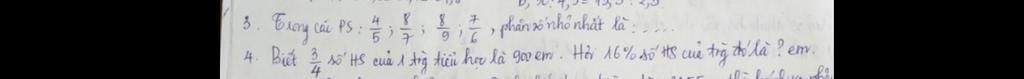 3. Trong các PS: 4/5; 8/7; 8/9; 7/6, phân số nhỏ nhất là: .....
4. Biết 3/4 số HS của 1 trg tiểu học là 900 em. Hỏi 16% số HS của trg đó là ? em.